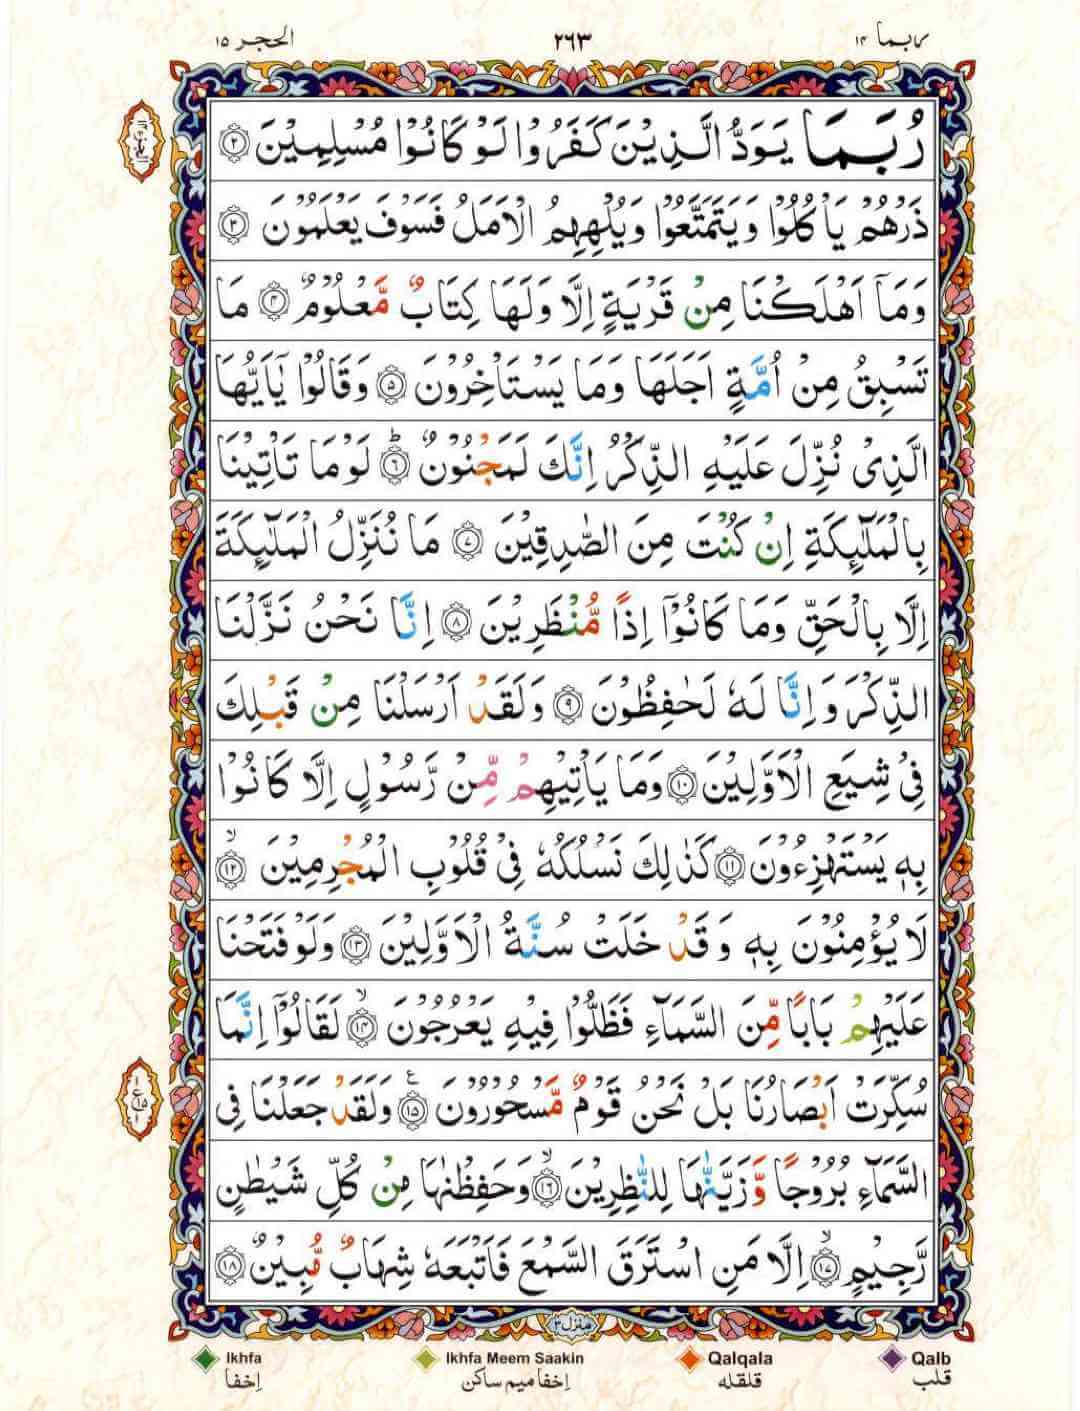 ربما ۱۴
۲۶۳
الحجر ۱۵
رُبَمَا يَوَدُّ الَّذِيْنَ كَفَرُوْا لَوْ كَانُوْا مُسْلِمِيْنَ ۝۲
ذَرْهُمْ يَاْكُلُوْا وَيَتَمَتَّعُوْا وَيُلْهِهِمُ الْاَمَلُ فَسَوْفَ يَعْلَمُوْنَ ۝۳
وَمَاۤ اَهْلَكْنَا مِنْ قَرْيَةٍ اِلَّا وَلَهَا كِتَابٌ مَّعْلُوْمٌ ۝۴ مَا
تَسْبِقُ مِنْ اُمَّةٍ اَجَلَهَا وَمَا يَسْتَاْخِرُوْنَ ۝۵ وَقَالُوْا يٰۤاَيُّهَا
الَّذِىْ نُزِّلَ عَلَيْهِ الذِّكْرُ اِنَّكَ لَمَجْنُوْنٌ ؕ۝۶ لَوْمَا تَاْتِيْنَا
بِالْمَلٰٓئِكَةِ اِنْ كُنْتَ مِنَ الصّٰدِقِيْنَ ۝۷ مَا نُنَزِّلُ الْمَلٰٓئِكَةَ
اِلَّا بِالْحَقِّ وَمَا كَانُوْۤا اِذًا مُّنْظَرِيْنَ ۝۸ اِنَّا نَحْنُ نَزَّلْنَا
الذِّكْرَ وَاِنَّا لَهٗ لَحٰفِظُوْنَ ۝۹ وَلَقَدْ اَرْسَلْنَا مِنْ قَبْلِكَ
فِىْ شِيَعِ الْاَوَّلِيْنَ ۝۱۰ وَمَا يَاْتِيْهِمْ مِّنْ رَّسُوْلٍ اِلَّا كَانُوْا
بِهٖ يَسْتَهْزِءُوْنَ ۝۱۱ كَذٰلِكَ نَسْلُكُهٗ فِىْ قُلُوْبِ الْمُجْرِمِيْنَ ۙ۝۱۲
لَا يُؤْمِنُوْنَ بِهٖ وَقَدْ خَلَتْ سُنَّةُ الْاَوَّلِيْنَ ۝۱۳ وَلَوْ فَتَحْنَا
عَلَيْهِمْ بَابًا مِّنَ السَّمَآءِ فَظَلُّوْا فِيْهِ يَعْرُجُوْنَ ۙ۝۱۴ لَقَالُوْۤا اِنَّمَا
سُكِّرَتْ اَبْصَارُنَا بَلْ نَحْنُ قَوْمٌ مَّسْحُوْرُوْنَ ۝۱۵ ع وَلَقَدْ جَعَلْنَا فِى
السَّمَآءِ بُرُوْجًا وَّزَيَّنّٰهَا لِلنّٰظِرِيْنَ ۙ۝۱۶ وَحَفِظْنٰهَا مِنْ كُلِّ شَيْطٰنٍ
رَّجِيْمٍ ۙ۝۱۷ اِلَّا مَنِ اسْتَرَقَ السَّمْعَ فَاَتْبَعَهٗ شِهَابٌ مُّبِيْنٌ ۝۱۸
منزل ۳
Ikhfa
Ikhfa Meem Saakin
Qalqala
Qalb
اخفا
اخفا میم ساکن
قلقله
قلب